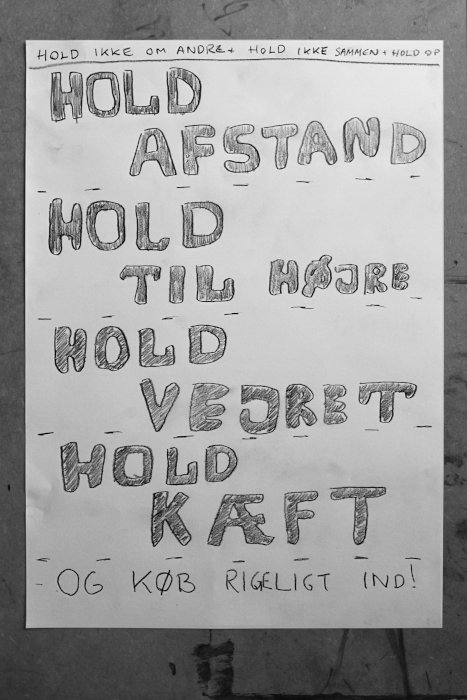 HOLD IKKE OM ANDRE + HOLD IKKE SAMMEN + HOLD OP
HOLD
AFSTAND
HOLD
TIL HØJRE
HOLD
VEJRET
HOLD
KÆFT
OG KØB RIGELIGT IND!